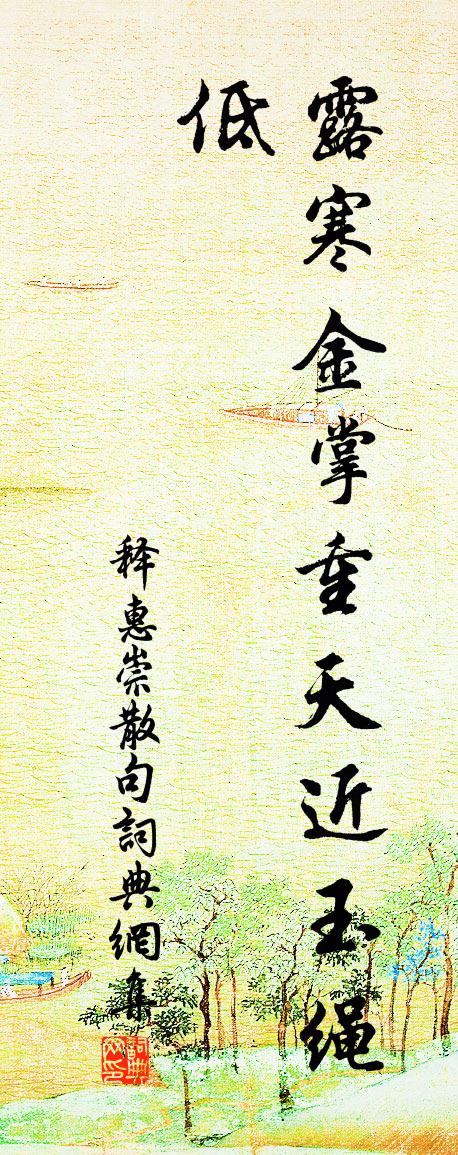 露寒金掌重天近玉绳
低
释惠崇散句詞典網集